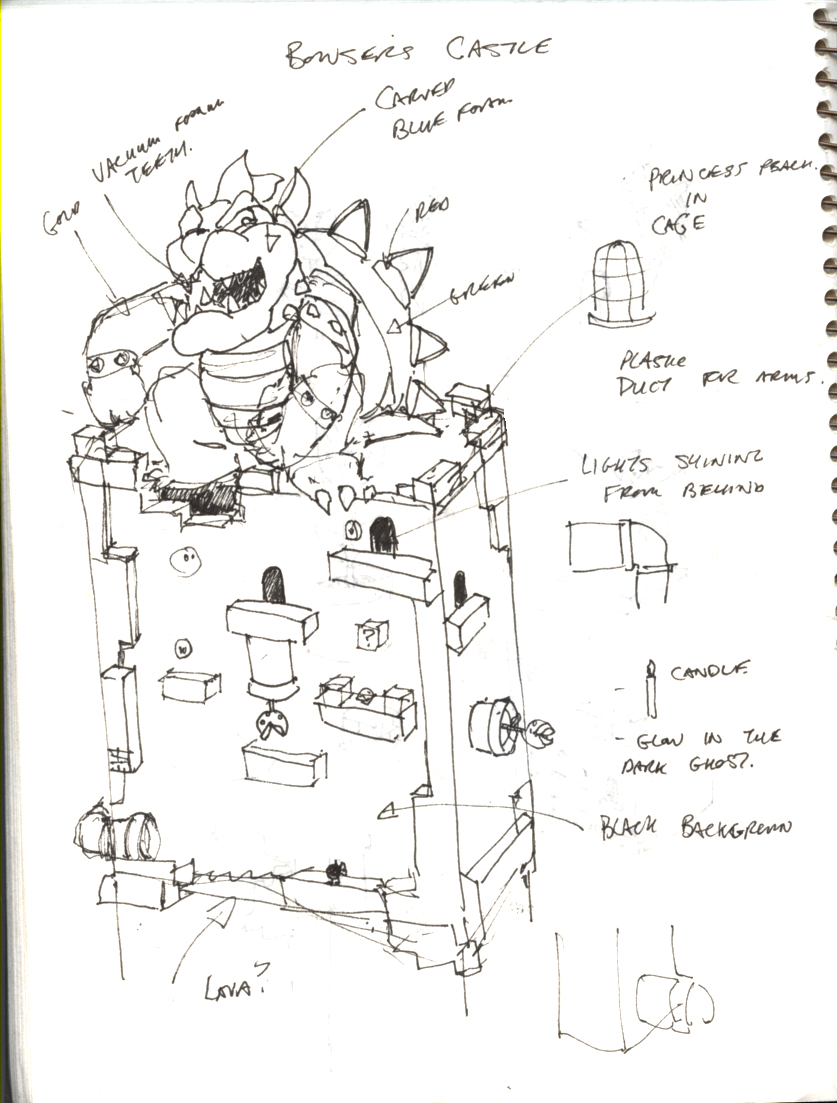 BOWSER'S CASTLE
CARVED
BLUE FOAM
VACUUM FORMED
TEETH.
GOLD
RED
GREEN
PRINCESS PEACH.
IN
CAGE
PLASTIC
DUCT FOR ARMS.
LIGHTS SHINING
FROM BEHIND
?
- CANDLE
- GLOW IN THE
DARK GHOST.
BLACK BACKGROUND
LAVA?